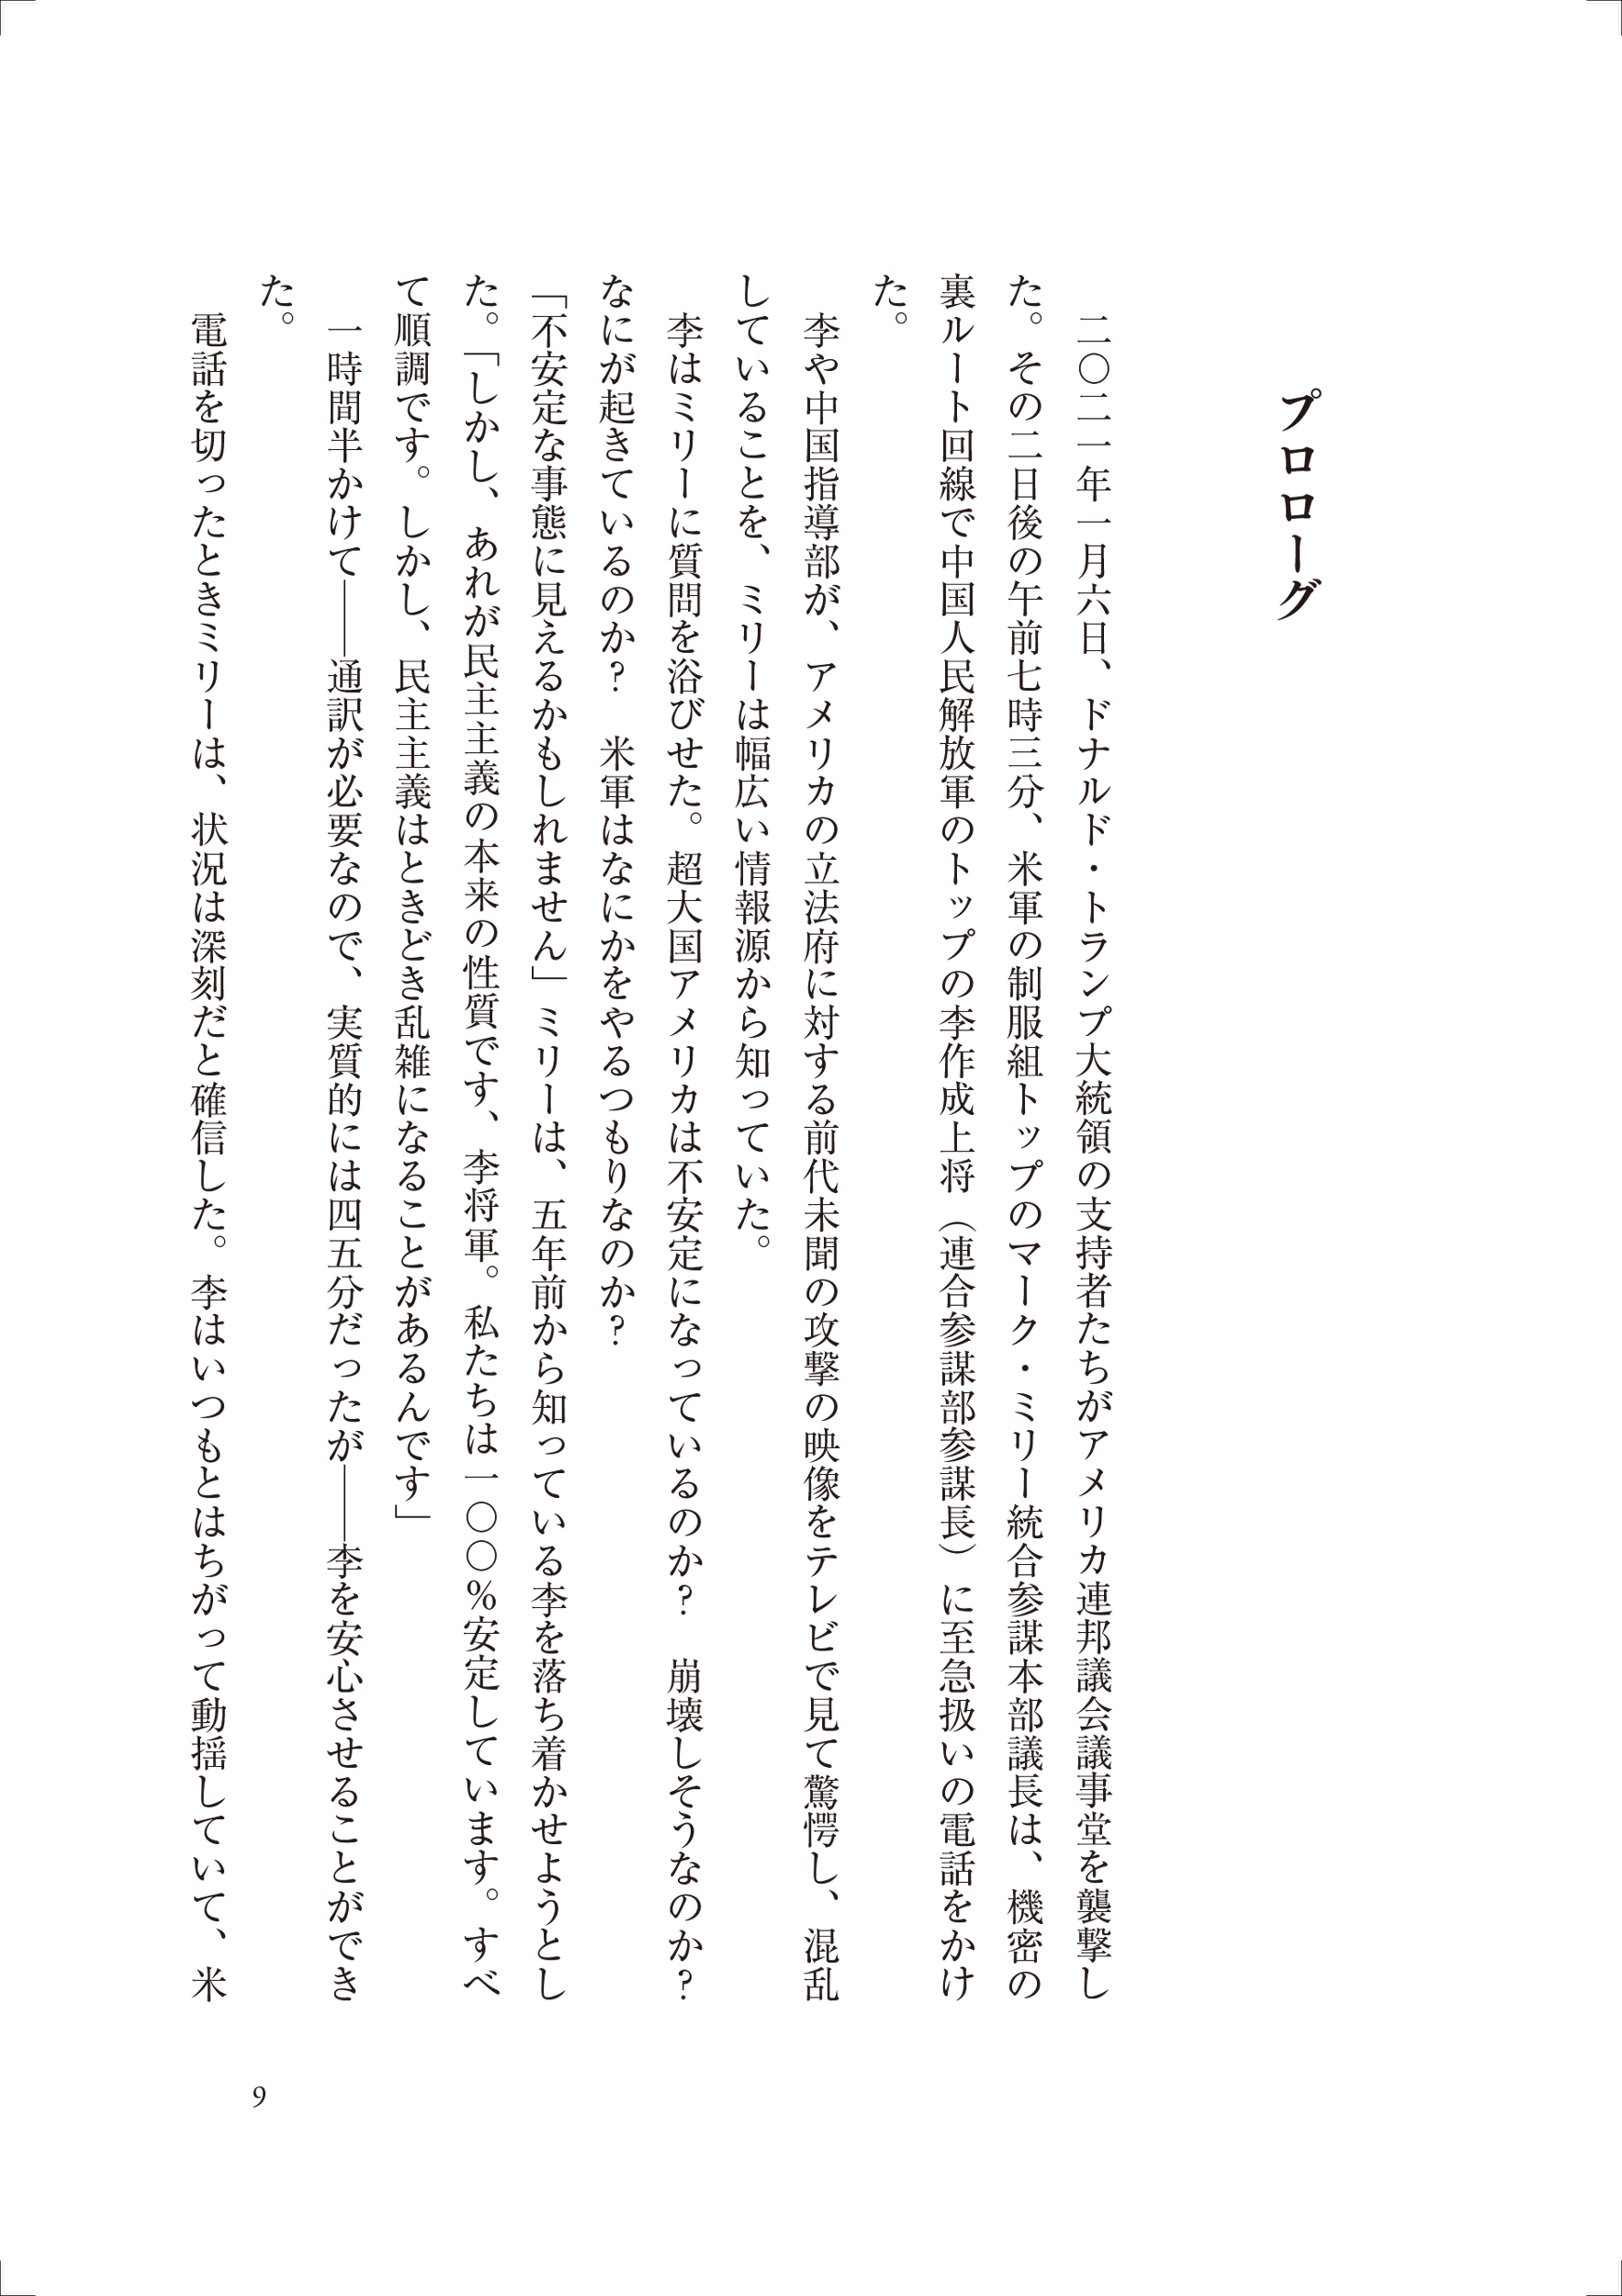 プロローグ
　二〇二一年一月六日、ドナルド・トランプ大統領の支持者たちがアメリカ連邦議会議事堂を襲撃し
た。その二日後の午前七時三分、米軍の制服組トップのマーク・ミリー統合参謀本部議長は、機密の
裏ルート回線で中国人民解放軍のトップの李作成上将（連合参謀部参謀長）に至急扱いの電話をかけ
た。
　李や中国指導部が、アメリカの立法府に対する前代未聞の攻撃の映像をテレビで見て驚愕し、混乱
していることを、ミリーは幅広い情報源から知っていた。
　李はミリーに質問を浴びせた。超大国アメリカは不安定になっているのか？　崩壊しそうなのか？
なにが起きているのか？　米軍はなにかをやるつもりなのか？
「不安定な事態に見えるかもしれません」ミリーは、五年前から知っている李を落ち着かせようとし
た。「しかし、あれが民主主義の本来の性質です、李将軍。私たちは一〇〇％安定しています。すべ
て順調です。しかし、民主主義はときどき乱雑になることがあるんです」
　一時間半かけて――通訳が必要なので、実質的には四五分だったが――李を安心させることができ
た。
　電話を切ったときミリーは、状況は深刻だと確信した。李はいつもとはちがって動揺していて、米
9